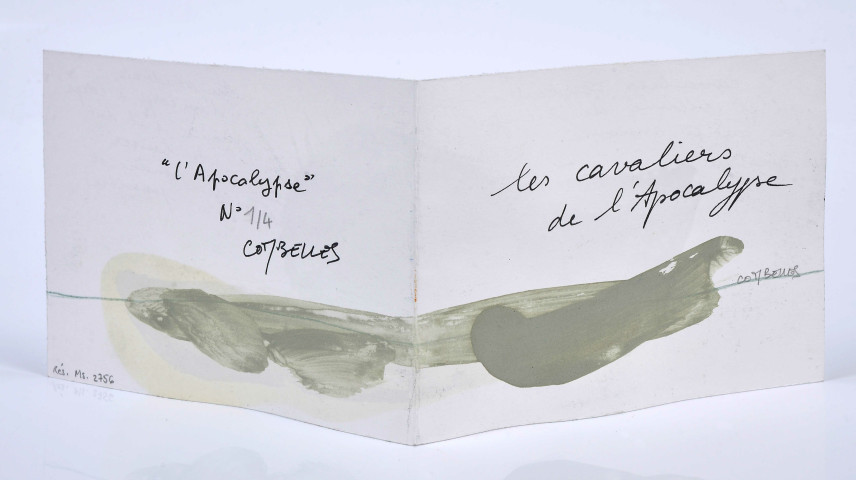 "l'Apocalypse"
N° 1/4
COMBELLES
Rés. Ms. 2756
les cavaliers
de l'Apocalypse
COMBELLES